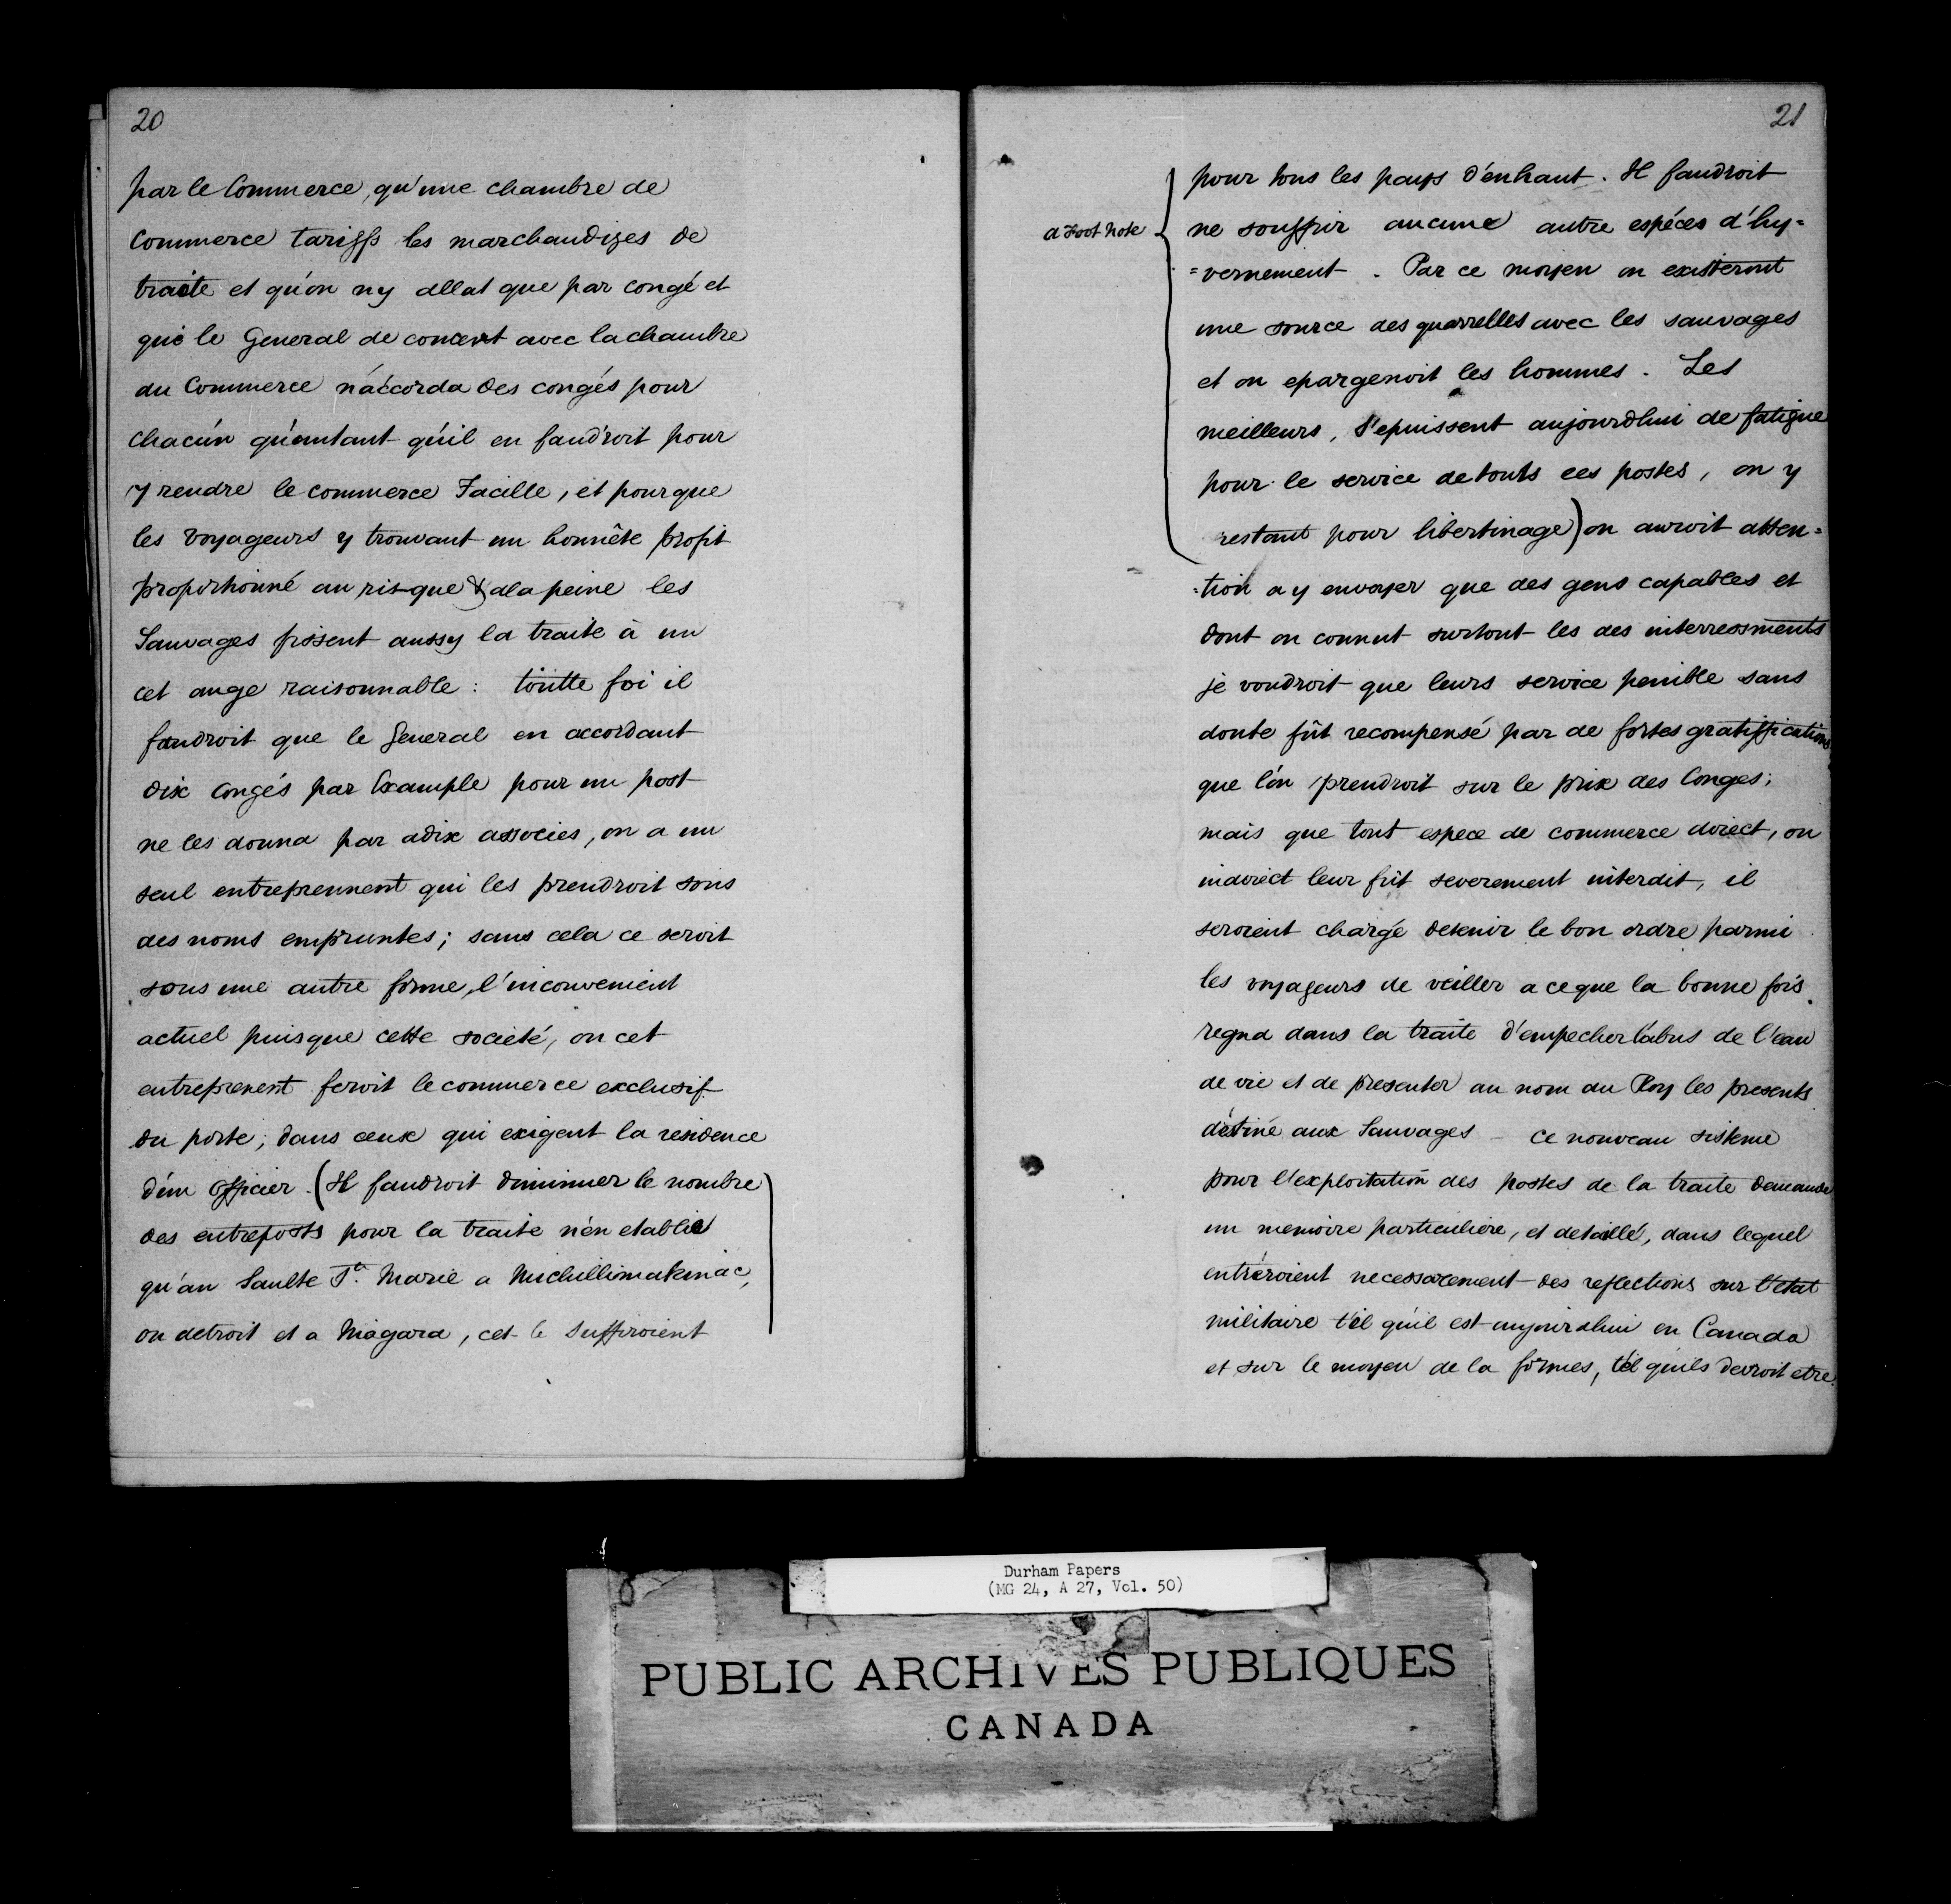 20
par le Commerce, qu'une chambre de
Commerce tariffs les marchandizes de
traite et qu'on n'y allat que par congé et
que le General de concert avec la chambre
du Commerce n'accorda des congés pour
chacún qu'autant qu'il en faudroit pour
y rendre le commerce Facille, et pour que
les voyageurs y trouvant un honnête profit
proportionné au risque & à la peine les
Sauvages fissent aussy la traite à un
cet ange raisonnable : toutte foi il
faudroit que le General en accordant
dix congés par Example pour un post
ne les donna par a dix associes, on a un
seul entreprennent qui les prendroit sous
des noms empruntes; sans cela ce seroit
sous une autre forme, l'inconvenient
actuel puisque cette societé, on cet
entreprenent feroit le commerce exclusif
du porte; dans ceux qui exigent la residence
d'un officier. (Il faudroit diminuer le nombre
des entreposts pour la traite n'en etablie
qu'au Saulte Te. Marie a Michillimakinac,
on detroit et a Niagara, cet le suffiroient
21
a Foot Note
pour tous les pays d'enhaut. Il faudroit
ne souffrir aucune autre espéces d'hy=
=vernement. Par ce moyen on existeront
une source des quarrelles avec les sauvages
et on epargenoit les hommes. Les
meilleurs, s'epuissent aujourdhui de fatigue
pour le service de touts ces postes, on y
restant pour libertinage) on auroit atten=
=tion a y envoyer que des gens capables et
dont on connut surtout les des interressments
je voudroit que leurs service penible sans
doute fût recompensé par de fortes gratiffications
que l'on prendroit sur le prix des Conges;
mais que tout espece de commerce direct, ou
indirect leur fût severement interdit, il
seroient chargé detenir le bon ordre parmi
les voyageurs de veiller a ce que la bonne fois
regna dans la traite d'empecher l'abus de l'eau
de vie et de presenter au nom du Roy les presents
déstiné aux Sauvages – ce nouveau sisteme
pour l'exploitation des postes de la traite demande
un memoire particuliére, et detaillé, dans lequel
entréroient necessarement des reflections sur l'etat
militaire t'el qu'il est aujourdhui en Canada
et sur le moyen de la formes, t'el qu'ils devroit etre.
Durham Papers
(MG 24, A 27, Vol. 50)
PUBLIC ARCHIVES PUBLIQUES
CANADA